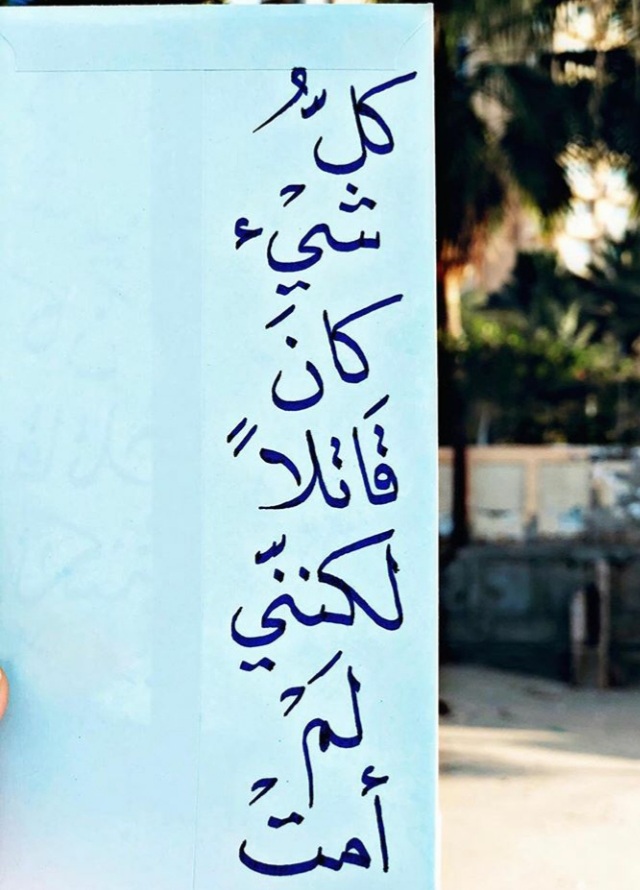 كلُّ
شيْء
كانَ
قَاتلاً
لكننّي
لمَْ
أمتْ